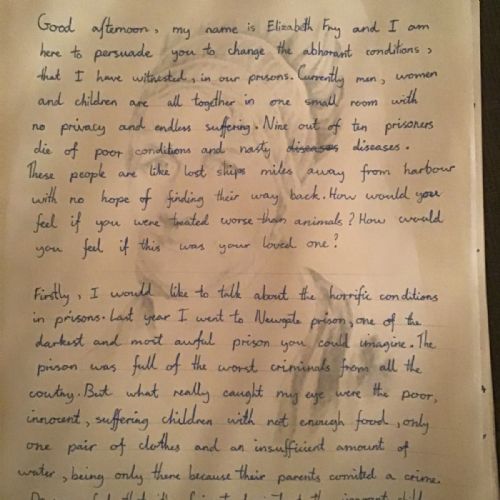 Good afternoon, my name is Elizabeth Fry and I am
here to persuade you to change the abhorant conditions,
that I have witnessed, in our prisons. Currently men, women
and children are all together in one small room with
no privacy and endless suffering. Nine out of ten prisoners
die of poor conditions and nasty diseases diseases.
These people are like lost ships miles away from harbour
with no hope of finding their way back. How would you
feel if you were treated worse than animals? How would
you feel if this was your loved one?
Firstly, I would like to talk about the horrific conditions
in prisons. Last year I went to Newgate prison, one of the
darkest and most awful prison you could imagine. The
prison was full of the worst criminals from all the
coutay. But what really caught my eye were the poor,
innocent, suffering children with not enough food, only
one pair of clothes and an insufficient amount of
water, being only there because their parents comited a crime.